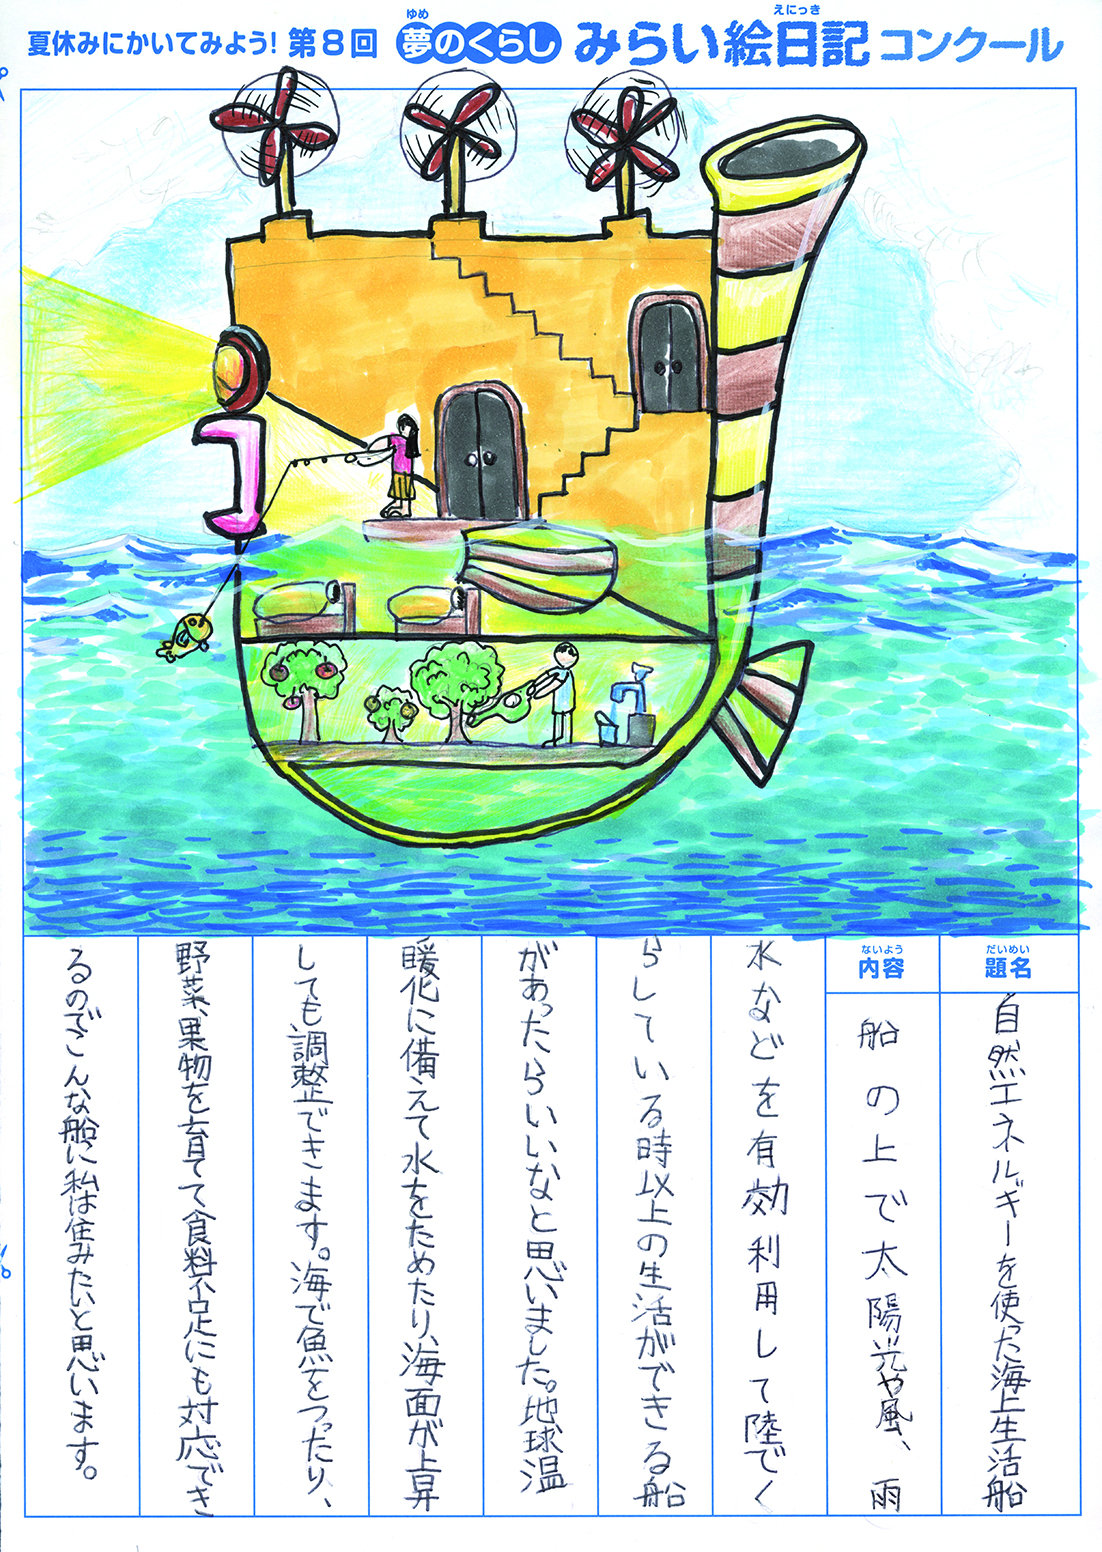 夏休みにかいてみよう! 第8回 夢のくらし みらい絵日記 コンクール
ゆめ
えにっき
だいめい
題名
自然エネルギーを使った海上生活船
ないよう
内容
船の上で太陽光や風、雨
水などを有効利用して陸でく
らしている時以上の生活ができる船
があったらいいなと思いました。地球温
暖化に備えて水をためたり、海面が上昇
しても調整できます。海で魚をつったり、
野菜、果物を育てて食料不足にも対応でき
るのでこんな船に私は住みたいと思います。